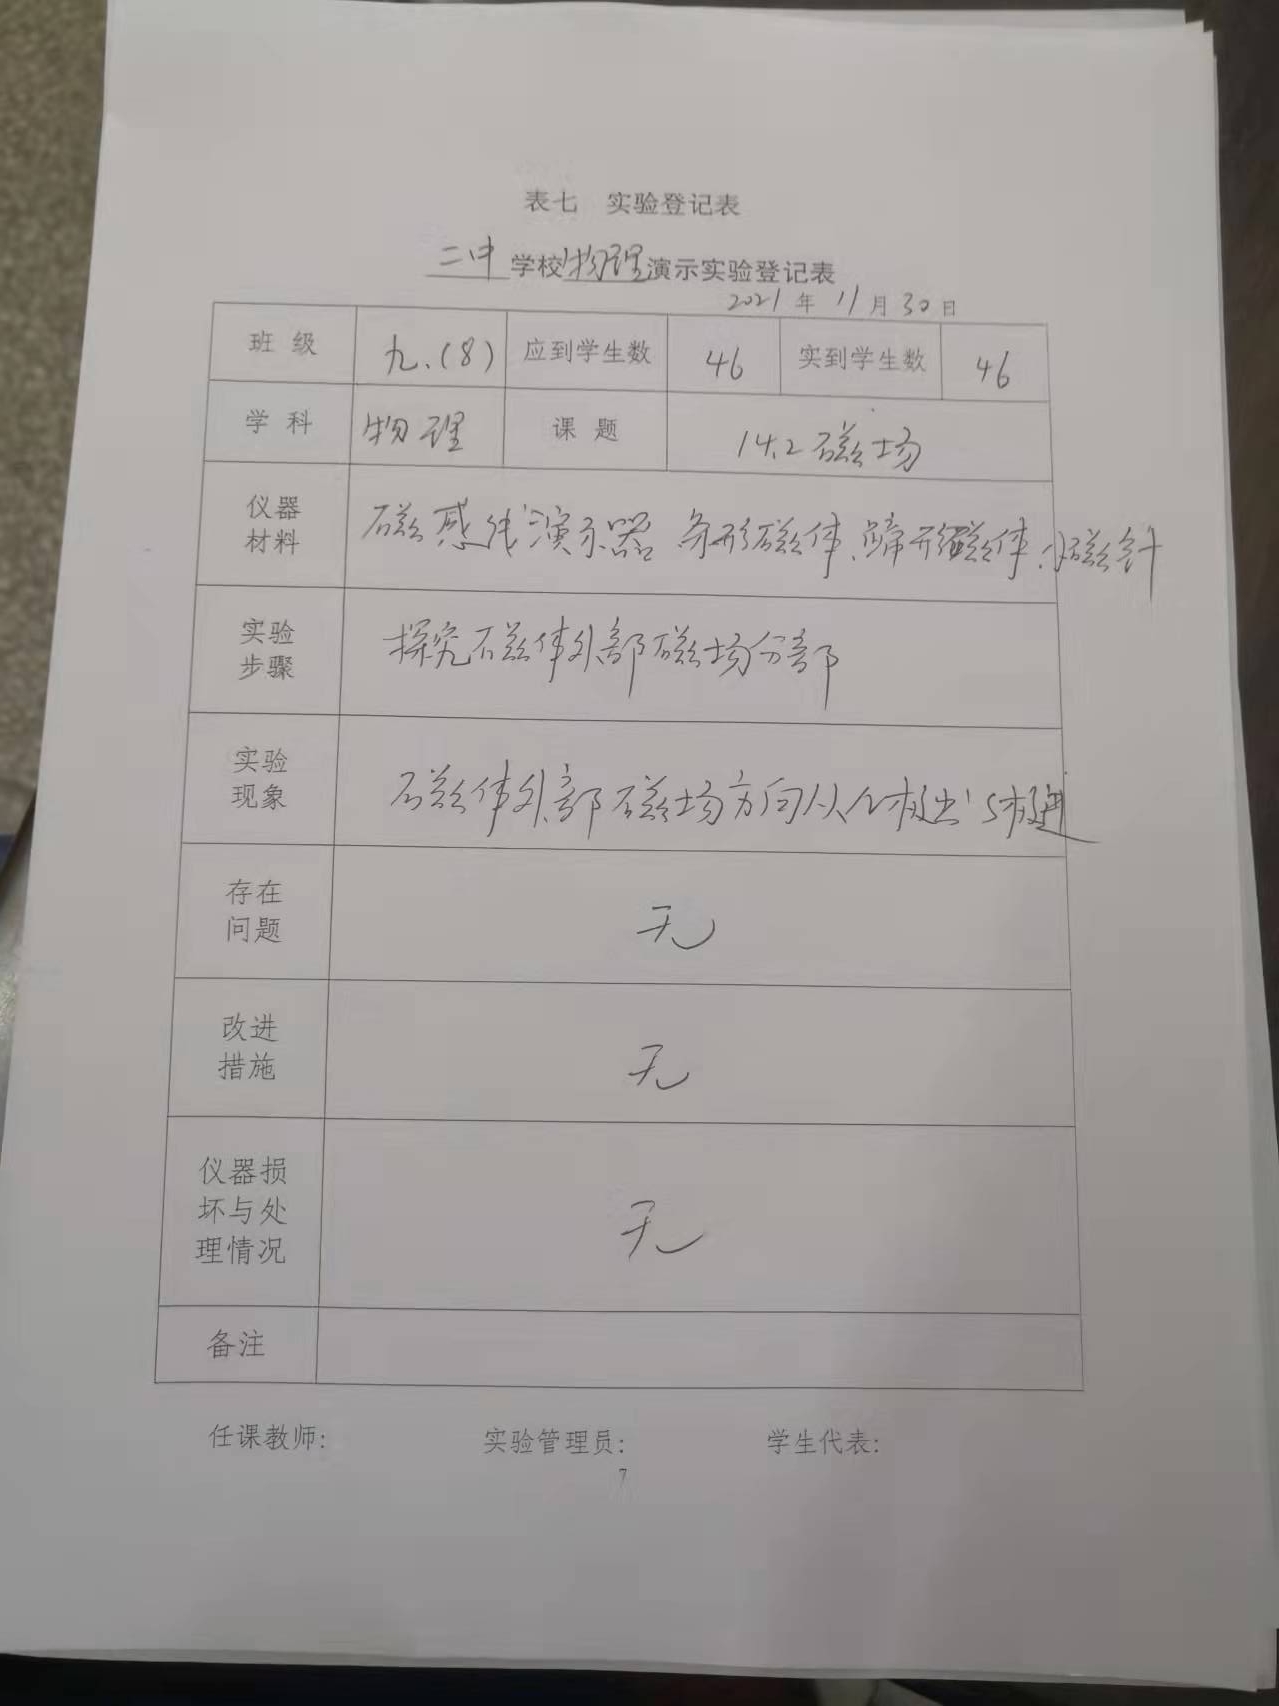 表七 实验登记表
二中学校物理演示实验登记表
2021年11月30日
班 级 九.(8) 应到学生数 46 实到学生数 46
学 科 物理 课 题 14.2磁场
仪器
材料
磁感线演示器 条形磁体、蹄形磁体、小磁针
实验
步骤
探究磁体外部磁场分部
实验
现象
磁体外部磁场方向从N极出,S极进
存在
问题
无
改进
措施
无
仪器损
坏与处
理情况
无
备注
任课教师: 实验管理员: 学生代表:
7